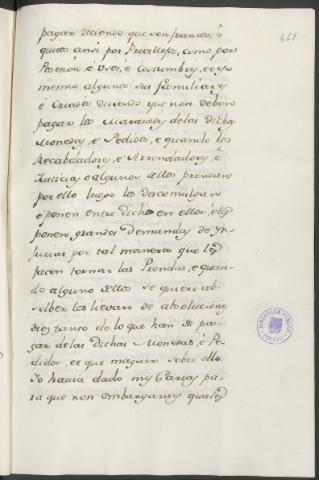 461
pagar diciendo que son francos, o
quitos ansi por Previllejo, como por
Poseron, è Uso, e Costumbre, ea eso
mesmo algunos sus familiares
è Criados diciendo que non deben
pagar los Maravedis de las dichas
Monedas, è Pedidos, e quando los
Recabdadores, è Arrendadores, è
Justicias o algunos dellos prendan
por ello luego los descomulgan
è ponen entre Dicho en ellos, è les
ponen grandes demandas de Yn-
jurias por tal manera que les
facen tornar las Prendas, e quan-
do alguno dellos se quiere ab-
solber los llevan de absoluciones
diez tanto de lo que han de pa-
gar de las Dichas Monedas, è Pe-
didos, et que maguer sobre ello
Yo havia dado mis Cartas pa-
ra que non embargantes quales
BIBLIOTECA PUBLICA
TOLEDO